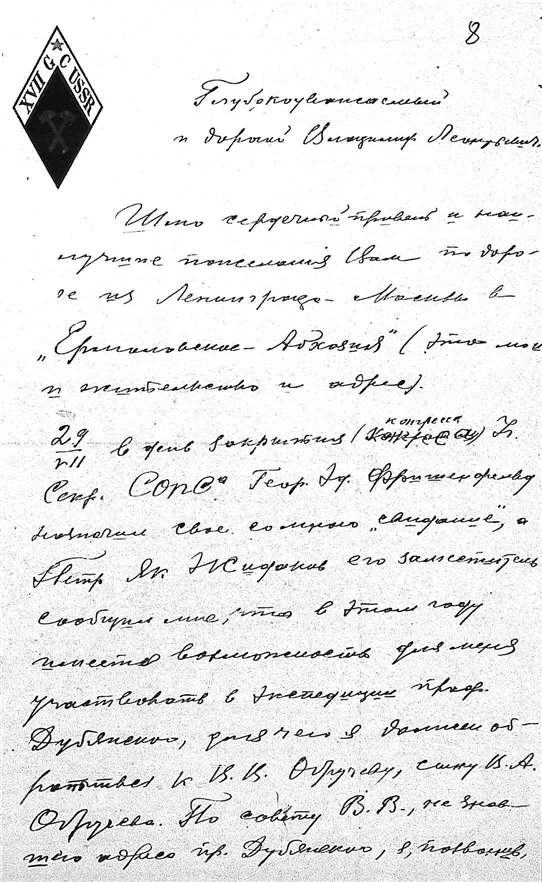 8
XVII G C USSR
Глубокоуважаемый
и дорогой Владимир Леонтьевич.
Шлю сердечный привет и наи-
лучшие пожелания Вам по доро-
ге из Ленинграда - Москвы в
„Ермоловское - Абхазия" (это мои
и жительство и адрес).
29/VII в день закрытия (конгресса)
Секр. СОПСа Геор. Эд. Фришенфельд
назначил свое со мною „свидание", а
Петр Як Жидаков его заместитель
сообщил мне, что в этом году
имеется возможность для меня
участвовать в экспедиции проф.
Дубянского, для чего я должен об-
ратиться к В. В. Обручеву, сыну В. А.
Обручева. По совету В. В., не знав-
шего адреса пр. Дубянского, я, позвонив,